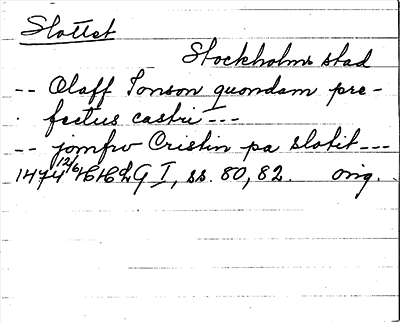 Slottet
Stockholms stad
-- Olaff Jonson quondam pre-
fectus castri ---
-- jomfrv Cristin pa slotit ---
1474 12/6 HH LG I, ss. 80, 82. orig.